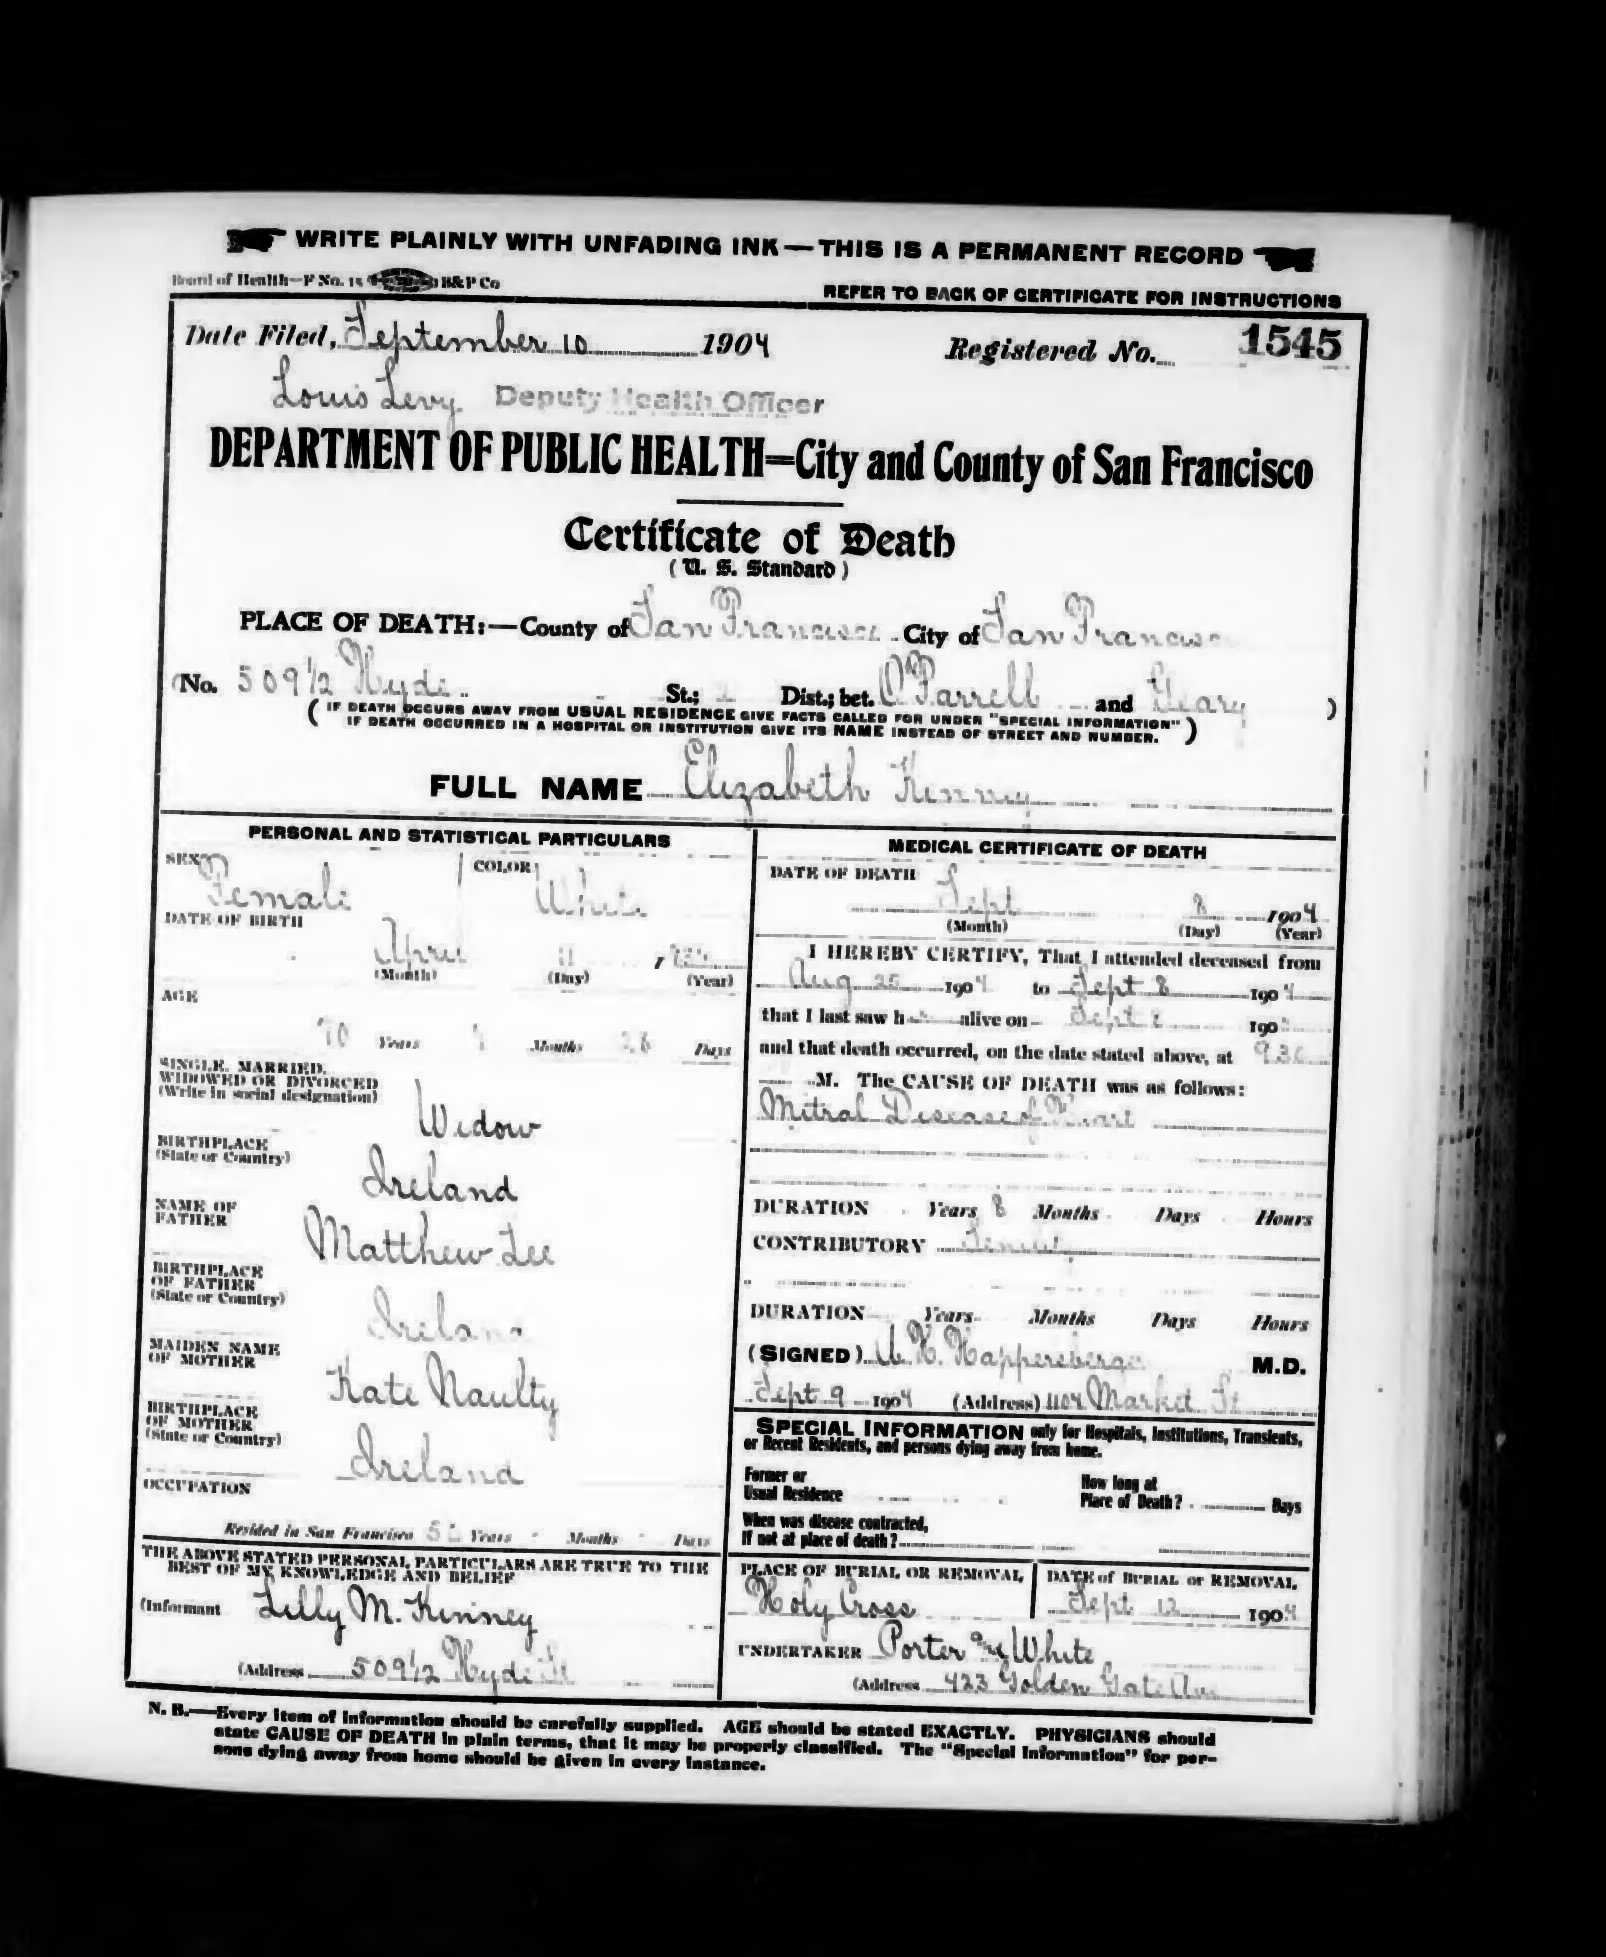 WRITE PLAINLY WITH UNFADING INK — THIS IS A PERMANENT RECORD
Board of Health—F No. 15 B&P Co
REFER TO BACK OF CERTIFICATE FOR INSTRUCTIONS
Date Filed, September 10 1904 Registered No. 1545
Louis Levy Deputy Health Officer
DEPARTMENT OF PUBLIC HEALTH=City and County of San Francisco
Certificate of Death
(U. S. Standard)
PLACE OF DEATH:—County of San Francisco City of San Francisco
(No. 509 1/2 Hyde St.; Dist.; bet. O'Farrell and Geary )
(IF DEATH OCCURS AWAY FROM USUAL RESIDENCE GIVE FACTS CALLED FOR UNDER "SPECIAL INFORMATION"
IF DEATH OCCURRED IN A HOSPITAL OR INSTITUTION GIVE ITS NAME INSTEAD OF STREET AND NUMBER.)
FULL NAME Elizabeth Kinney
PERSONAL AND STATISTICAL PARTICULARS
SEX Female COLOR White
DATE OF BIRTH
April 11 1
(Month) (Day) (Year)
AGE
70 Years Months Days
SINGLE, MARRIED,
WIDOWED OR DIVORCED
(Write in social designation)
Widow
BIRTHPLACE
(State or Country)
Ireland
NAME OF
FATHER
Matthew Lee
BIRTHPLACE
OF FATHER
(State or Country)
Ireland
MAIDEN NAME
OF MOTHER
Kate Naulty
BIRTHPLACE
OF MOTHER
(State or Country)
Ireland
OCCUPATION
Resided in San Francisco Years - Months - Days
THE ABOVE STATED PERSONAL PARTICULARS ARE TRUE TO THE
BEST OF MY KNOWLEDGE AND BELIEF
(Informant Lilly M. Kinney
(Address 509 1/2 Hyde St
MEDICAL CERTIFICATE OF DEATH
DATE OF DEATH
Sept 8 1904
(Month) (Day) (Year)
I HEREBY CERTIFY, That I attended deceased from
Aug 25 1904 to Sept 8 1904
that I last saw h alive on Sept 190
and that death occurred, on the date stated above, at 9.30
M. The CAUSE OF DEATH was as follows:
Mitral Disease of Heart
DURATION Years 8 Months Days Hours
CONTRIBUTORY
DURATION Years Months Days Hours
(SIGNED) H. Kappersberger M.D.
Sept 9 1904 (Address) 1104 Market St
SPECIAL INFORMATION only for Hospitals, Institutions, Transients,
or Recent Residents, and persons dying away from home.
Former or
Usual Residence
How long at
Place of Death? Days
When was disease contracted,
If not at place of death?
PLACE OF BURIAL OR REMOVAL
Holy Cross
DATE of BURIAL or REMOVAL
Sept 12 1904
UNDERTAKER Porter and White
(Address 423 Golden Gate Ave
N. B.—Every item of information should be carefully supplied. AGE should be stated EXACTLY. PHYSICIANS should
state CAUSE OF DEATH in plain terms, that it may be properly classified. The "Special Information" for per-
sons dying away from home should be given in every instance.